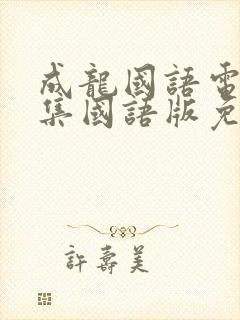 成龍國語電
集國語版免
許壽美